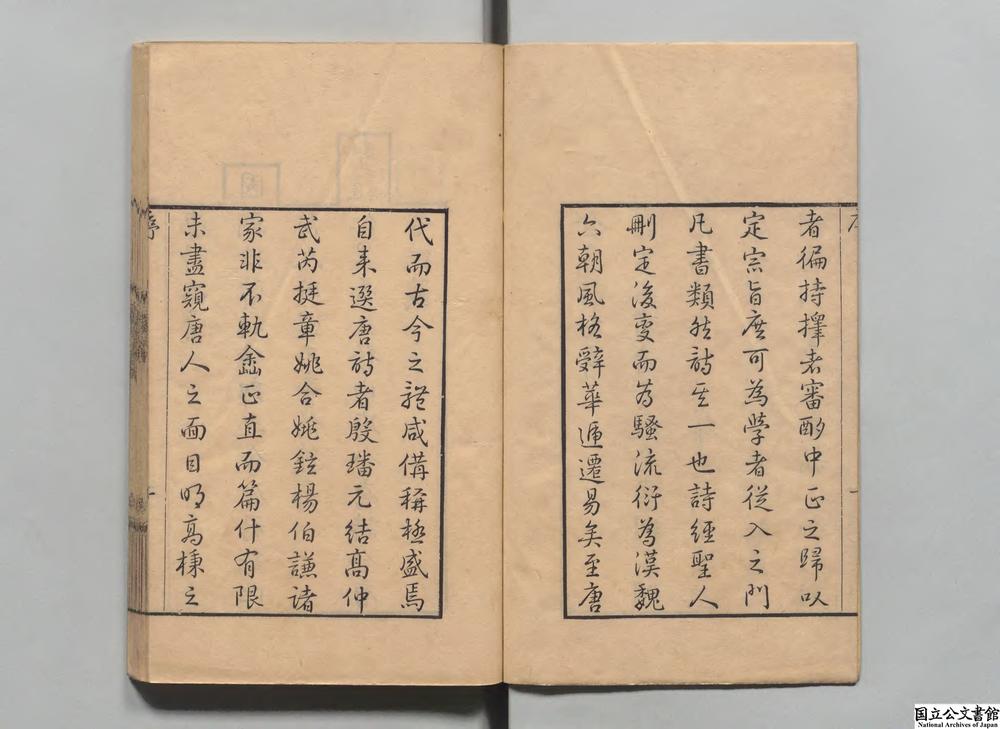 者徧持擇者審酌中正之歸以
定宗旨庶可為學者從入之門
凡書類然詩其一也詩經聖人
刪定後變而為騷流衍為漢魏
六朝風格辭華遞遷易矣至唐
代而古今之體咸備稱極盛焉
自来選唐詩者殷璠元結高仲
武芮挺章姚合姚鉉楊伯謙諸
家非不軌正直而篇什有限
未盡窺唐人之面目明高棅之
序
国立公文書館
National Archives of Japan